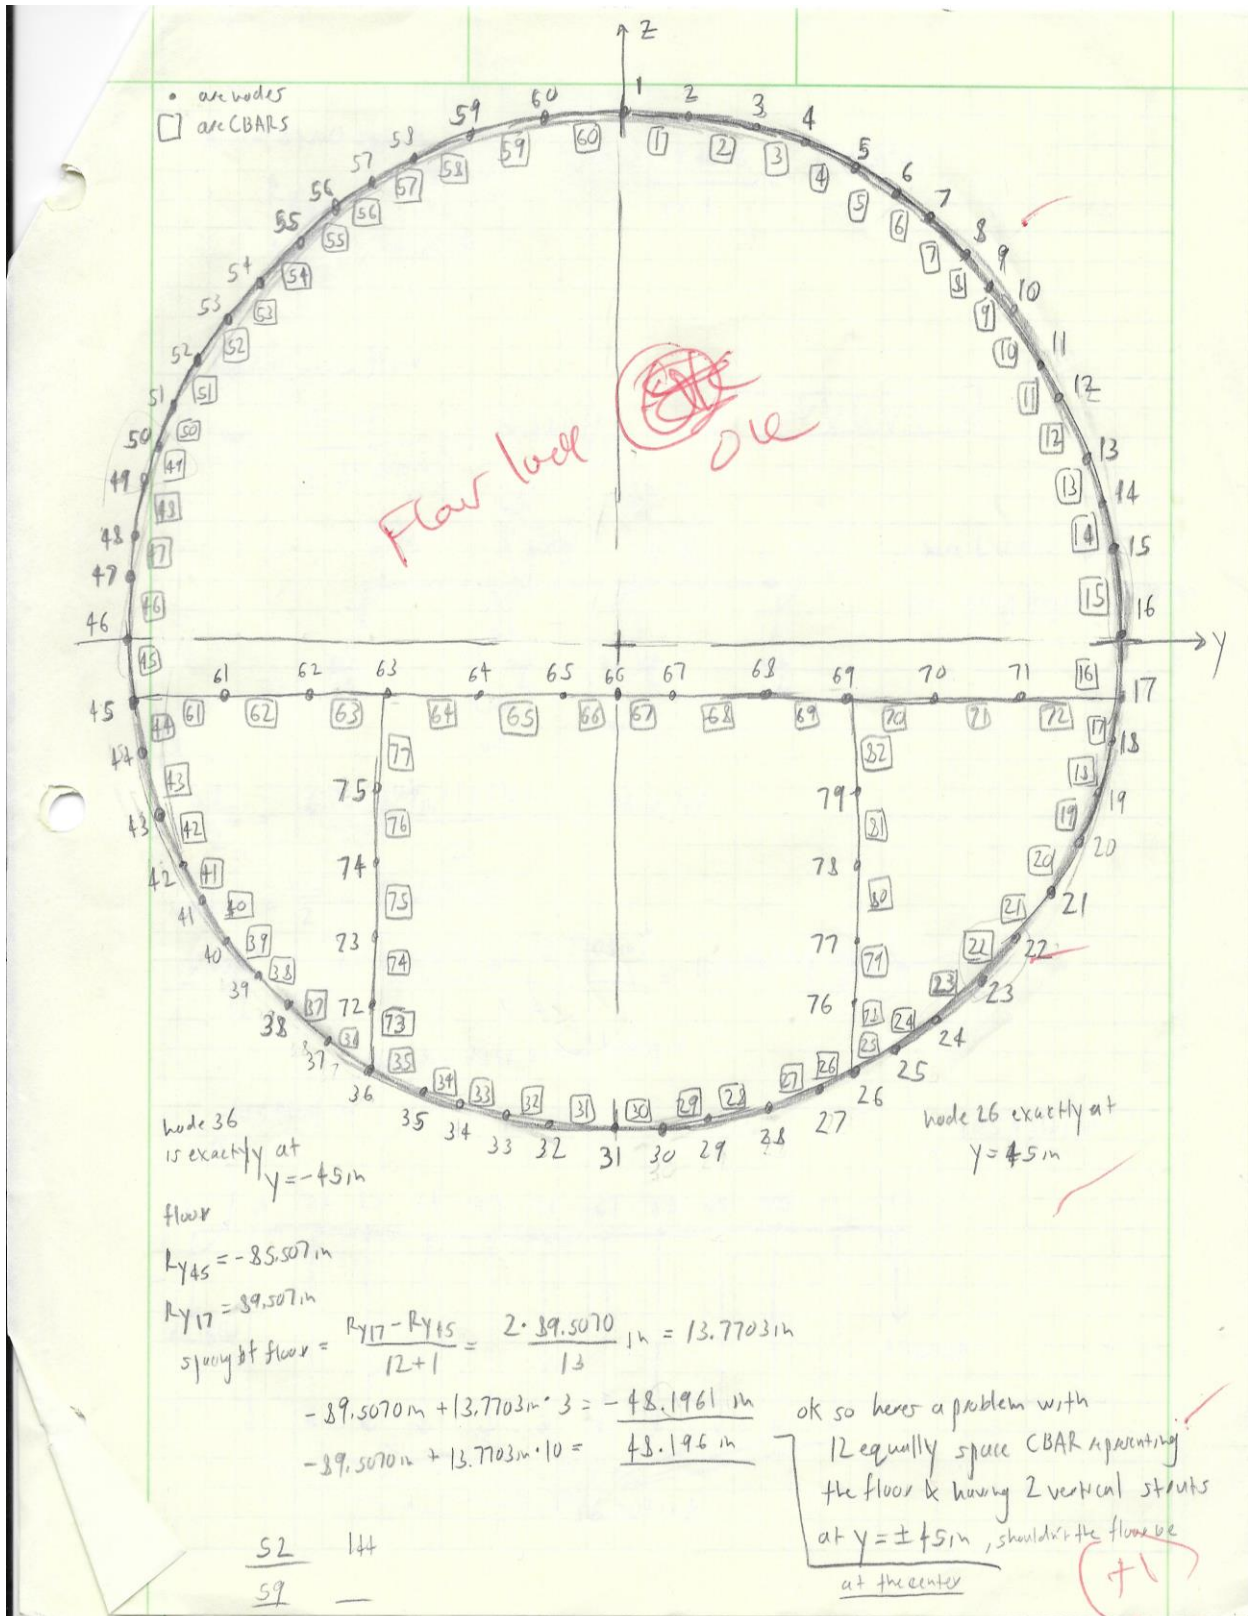 Z
• are nodes
☐ are CBARS
1 2 3 4 5 6 7 8 9 10 11 12 13 14 15 16
17 18 19 20 21 22 23 24 25 26 27 28 29 30 31
32 33 34 35 36 37 38 39 40 41 42 43 44 45
46 47 48 49 50 51 52 53 54 55 56 57 58 59 60
1 2 3 4 5 6 7 8 9 10 11 12 13 14 15
16 17 18 19 20 21 22 23 24 25 26 27 28 29 30
31 32 33 34 35 36 37 38 39 40 41 42 43 44 45
46 47 48 49 50 51 52 53 54 55 56 57 58 59 60
ok
Y
61 62 63 64 65 66 67 68 69 70 71
61 62 63 64 65 66 67 68 69 70 71 72
75 74 73 72
77 76 75 74 73
79 78 77 76
82 81 80 79
node 36
is exactly at
y = -45in
node 26 exactly at
y = 45in
floor
Ry45 = -85.507in
Ry17 = 89.507in
spacing of floor = (Ry17 - Ry45)/(12+1) = (2·89.5070)/13 in = 13.7703in
-89.5070in + 13.7703in·3 = -48.1961 in
-89.5070in + 13.7703in·10 = 48.196 in
ok so heres a problem with
12 equally space CBAR representing
the floor & having 2 vertical struts
at y = ±45in, shouldn't the floor be
at the center
+1
52 144
59